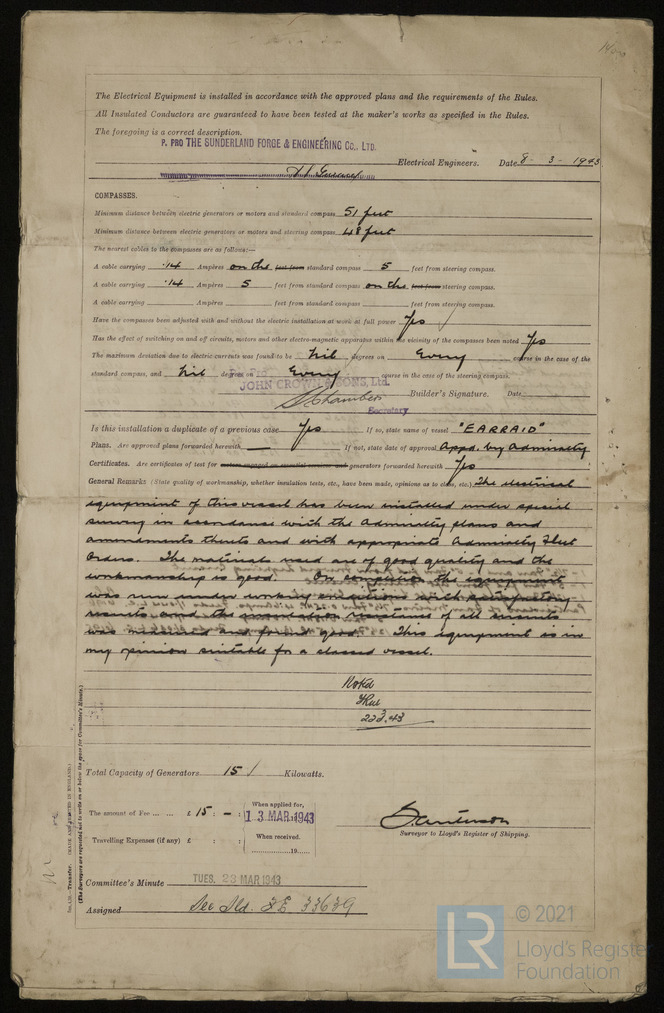 The Electrical Equipment is installed in accordance with the approved plans and the requirements of the Rules.
All Insulated Conductors are guaranteed to have been tested at the maker's works as specified in the Rules.
The foregoing is a correct description.
P. PRO THE SUNDERLAND FORGE & ENGINEERING Co., LTD.
Electrical Engineers. Date 8 - 3 - 1943
COMPASSES.
Minimum distance between electric generators or motors and standard compass 51 feet
Minimum distance between electric generators or motors and steering compass 48 feet
The nearest cables to the compasses are as follows:—
A cable carrying .14 Ampères on the feet from standard compass 5 feet from steering compass.
A cable carrying .14 Ampères 5 feet from standard compass on the feet from steering compass.
A cable carrying Ampères feet from standard compass feet from steering compass.
Have the compasses been adjusted with and without the electric installation at work at full power Yes
Has the effect of switching on and off circuits, motors and other electro-magnetic apparatus within the vicinity of the compasses been noted Yes
The maximum deviation due to electric currents was found to be Nil degrees on Every course in the case of the
standard compass, and Nil degrees on Every course in the case of the steering compass.
JOHN CROWN & SONS, Ltd.
Chambers Builder's Signature. Date
Secretary
Is this installation a duplicate of a previous case Yes If so, state name of vessel "EARRAID"
Plans. Are approved plans forwarded herewith — If not, state date of approval Appd. by Admiralty
Certificates. Are certificates of test for generators forwarded herewith Yes
General Remarks (State quality of workmanship, whether insulation tests, etc., have been made, opinions as to class, etc.) The electrical
equipment of this vessel has been installed under special
survey in accordance with the Admiralty plans and
amendments thereto and with appropriate Admiralty Fleet
Orders. The materials used are of good quality and the
workmanship is good. On completion the equipment
was run under working conditions with satisfactory
results and the insulation resistance of all circuits
was measured and found good. This equipment is in
my opinion suitable for a classed vessel.
Noted
22.3.43
Total Capacity of Generators 15 Kilowatts.
The amount of Fee ... ... £ 15 : — :
When applied for,
13 MAR 1943
Travelling Expenses (if any) £ : :
When received.
19
Surveyor to Lloyd's Register of Shipping.
Committee's Minute TUES. 23 MAR 1943
Assigned See Sld. F.E. 33639
(The Surveyors are requested not to write on or below the space for Committee's Minute.)
Transfer.
© 2021
LR
Lloyd's Register
Foundation